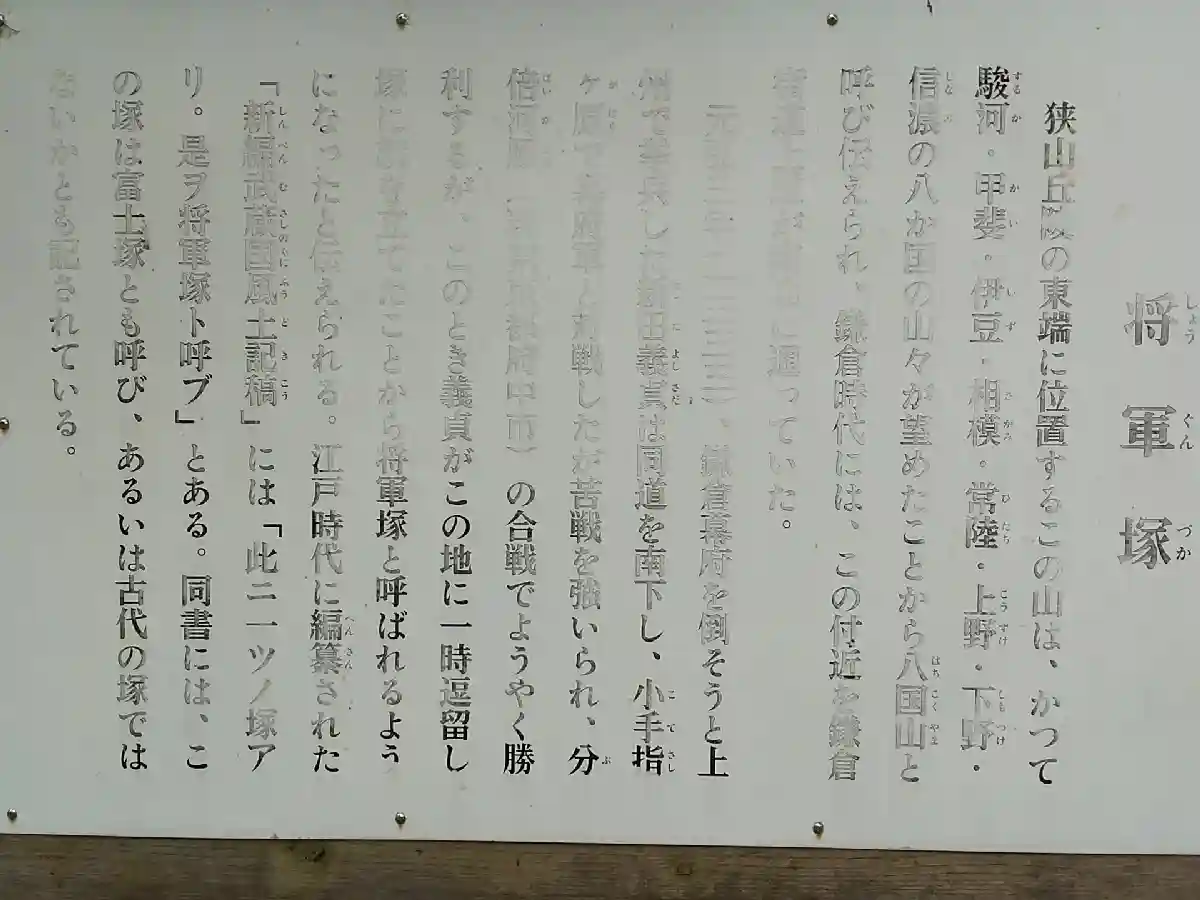 将軍塚
狭山丘陵の東端に位置するこの山は、かつて
駿河・甲斐・伊豆・相模・常陸・上野・下野・
信濃の八か国の山々が望めたことから八国山と
呼び伝えられ、鎌倉時代には、この付近を鎌倉
街道上道が南北に通っていた。
元弘三年(一三三三)、鎌倉幕府を倒そうと上
州で挙兵した新田義貞は同道を南下し、小手指
ヶ原で幕府軍と対戦したが苦戦を強いられ、分
倍河原(現府中市)の合戦でようやく勝
利するが、このとき義貞がこの地に一時逗留し
塚に旗を立てたことから将軍塚と呼ばれるよう
になったと伝えられる。江戸時代に編纂された
「新編武蔵国風土記稿」には「此ニ一ツノ塚ア
リ。是ヲ将軍塚ト呼ブ」とある。同書には、こ
の塚は富士塚とも呼び、あるいは古代の塚では
ないかとも記されている。